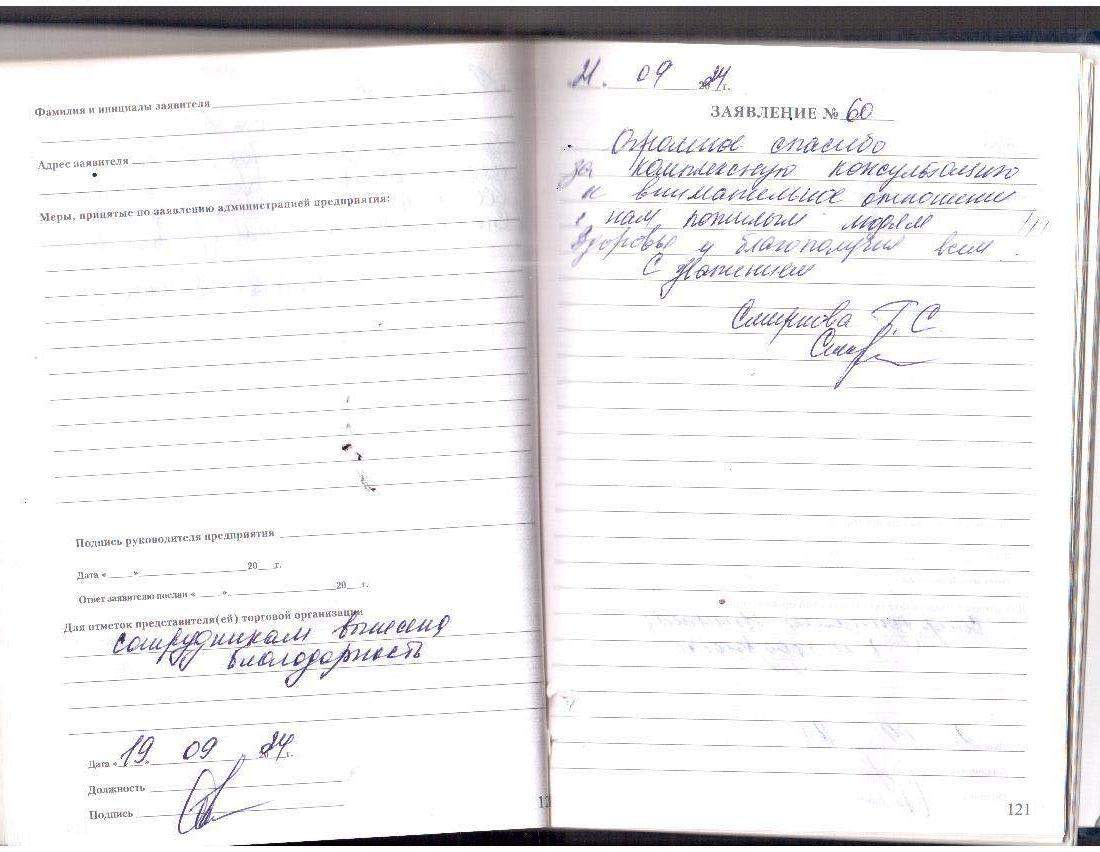 Фамилия и инициалы заявителя
Адрес заявителя
Меры, принятые по заявлению администрацией предприятия:
Подпись руководителя предприятия
Дата « » 20 г.
Ответ заявителю послан « » 20 г.
Для отметок представителя(ей) торговой организации
сотрудникам вынесена
благодарность
Дата « 19 » 09 2024 г.
Должность
Подпись
21. 09 2024 г.
ЗАЯВЛЕНИЕ № 60
Огромное спасибо
за комплексную консультацию
и внимательное отношение
к нам пожилым людям !!!
Здоровья и благополучия всем
С уважением
Смирнова Т. С
121